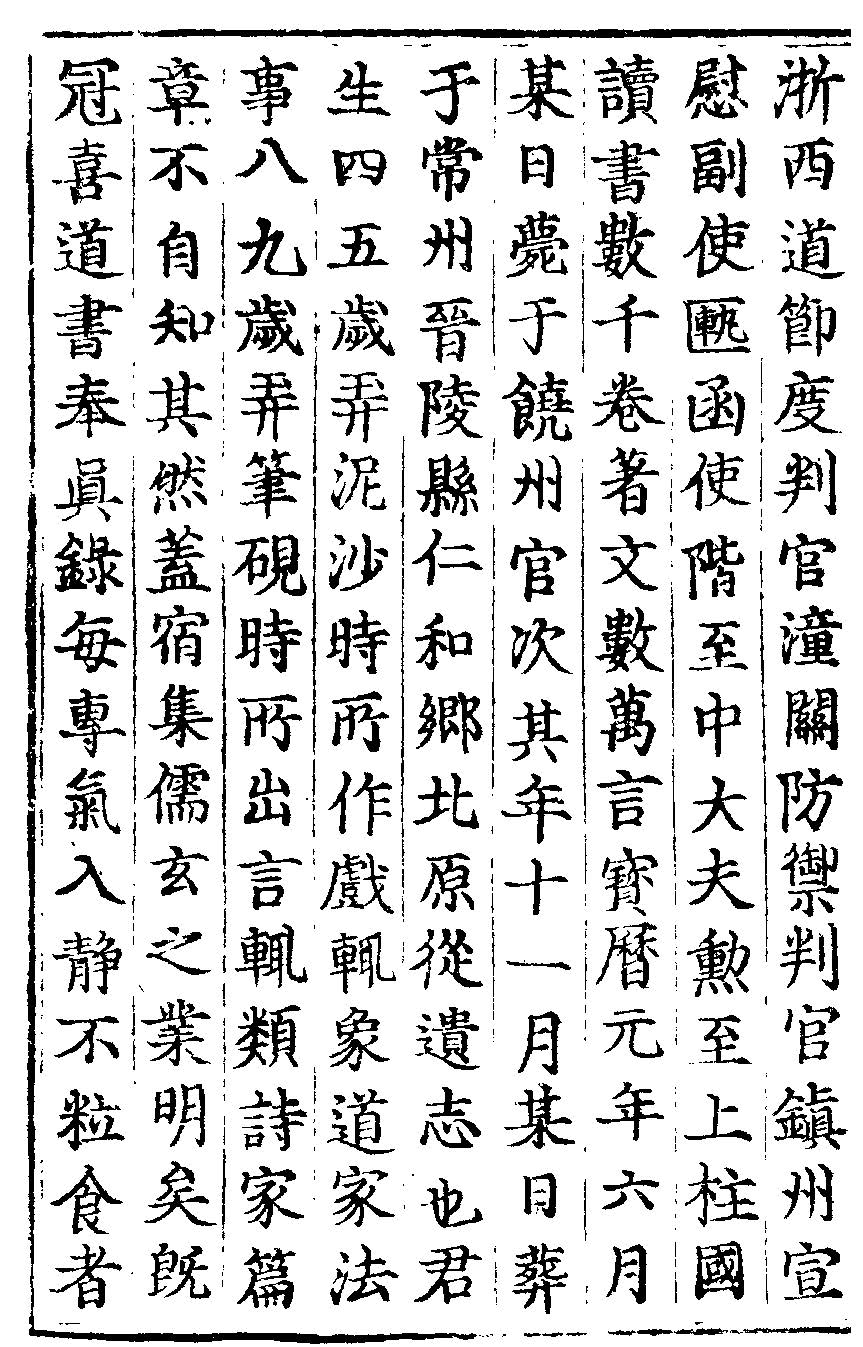 浙西道節度判官潼關防禦判官鎮州宣
慰副使匭函使階至中大夫勲至上柱國
讀書數千卷著文數萬言寳曆元年六月
某日薨于饒州官次其年十一月某日葬
于常州晉陵縣仁和鄉北原從遺志也君
生四五歲弄泥沙時所作戲輒象道家法
事八九歲弄筆硯時所出言輒類詩家篇
章不自知其然蓋宿集儒玄之業明矣既
冠喜道書奉眞錄每專氣入静不粒食者